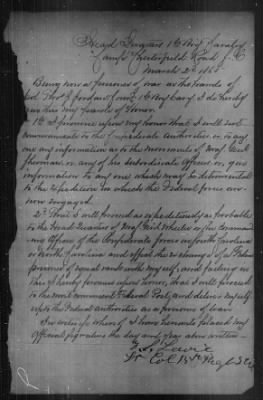 Head Quarters 1st Brig Cavalry
Camp Chesterfield Road S.C.
March 2d 1865
Being now a prisoner of war in the hands of
Col Thos J Jordan Comdg 1st Brig Cavy I do hereby
give this my parole of honor.
1st I promise upon my honor that I will not
communicate to the Confederate Authorities or to any
one any information as to the movements of Maj Genl
Sherman or any of his subordinate officers or give
information to any one which may be detrimental
to the expedition in which the Federal forces are
now engaged.
2d That I will proceed as expeditiously as probable
to the Head Quarters of Maj Genl Wheeler or the Comman
ding Officer of the Confederate forces in South Carolina
or North Carolina and effect the exchange of a Federal
prisoner of equal rank with myself, and failing in
this I hereby promise upon honor, that I will proceed
to the most convenient Federal Post, and deliver myself
up to the Federal authorities as a prisoner of war.
In witness whereof I have hereunto placed my
official signature the day and year above written
Lt Col